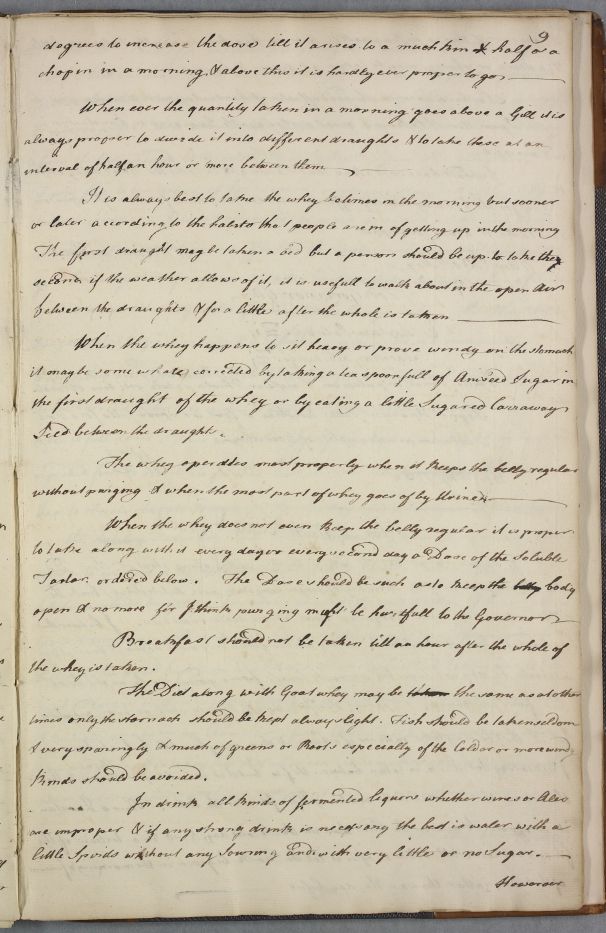 9
degrees to increase the dose till it arises to a mutchkin & half or a
chopin in a morning, & above this it is hardly ever proper to go
When ever the quantity taken in a morning goes above a Gill it is
always proper to divide it into different draughts & to take these at an
interval of half an hour or more between them
It is always best to take the whey betimes in the morning but sooner
or later according to the habits that people are in of getting up in the morning
The first draught may be taken a bed but a person should be up to take the
second, if the weather allows of it, it is usefull to walk about in the open Air
between the draughts & for a little after the whole is taken
When the whey happens to sit heavy or prove windy on the stomach
it may be some what corrected by taking a tea spoonfull of Aniseed Sugar in
the first draught of the whey or by eating a little Sugared Carraway
Seed between the draught.
The whey operates most properly when it keeps the belly regular
without purging & when the most part of whey goes of by Urine
When the whey does not even keep the belly regular it is proper
to take along with it every day or every second day a Dose of the Soluble
Tartar ordered below. The Dose should be such as to keep the belly body
open & no more for I think purging might be hurtfull to the Governor
Breakfast should not be taken till an hour after the whole of
the whey is taken.
The Diet along with Goat whey may be taken the same as at other
times only the stomach should be kept always light. Fish should be taken seldom
& very sparingly & much of greens or Roots especially of the Colder or more windy
kinds should be avoided.
In drink all kinds of fermented liquors whether wines or Ales
are improper & if any strong drink is necessary the best is water with a
little Spirits without any Souring and with very little or no Sugar.
However